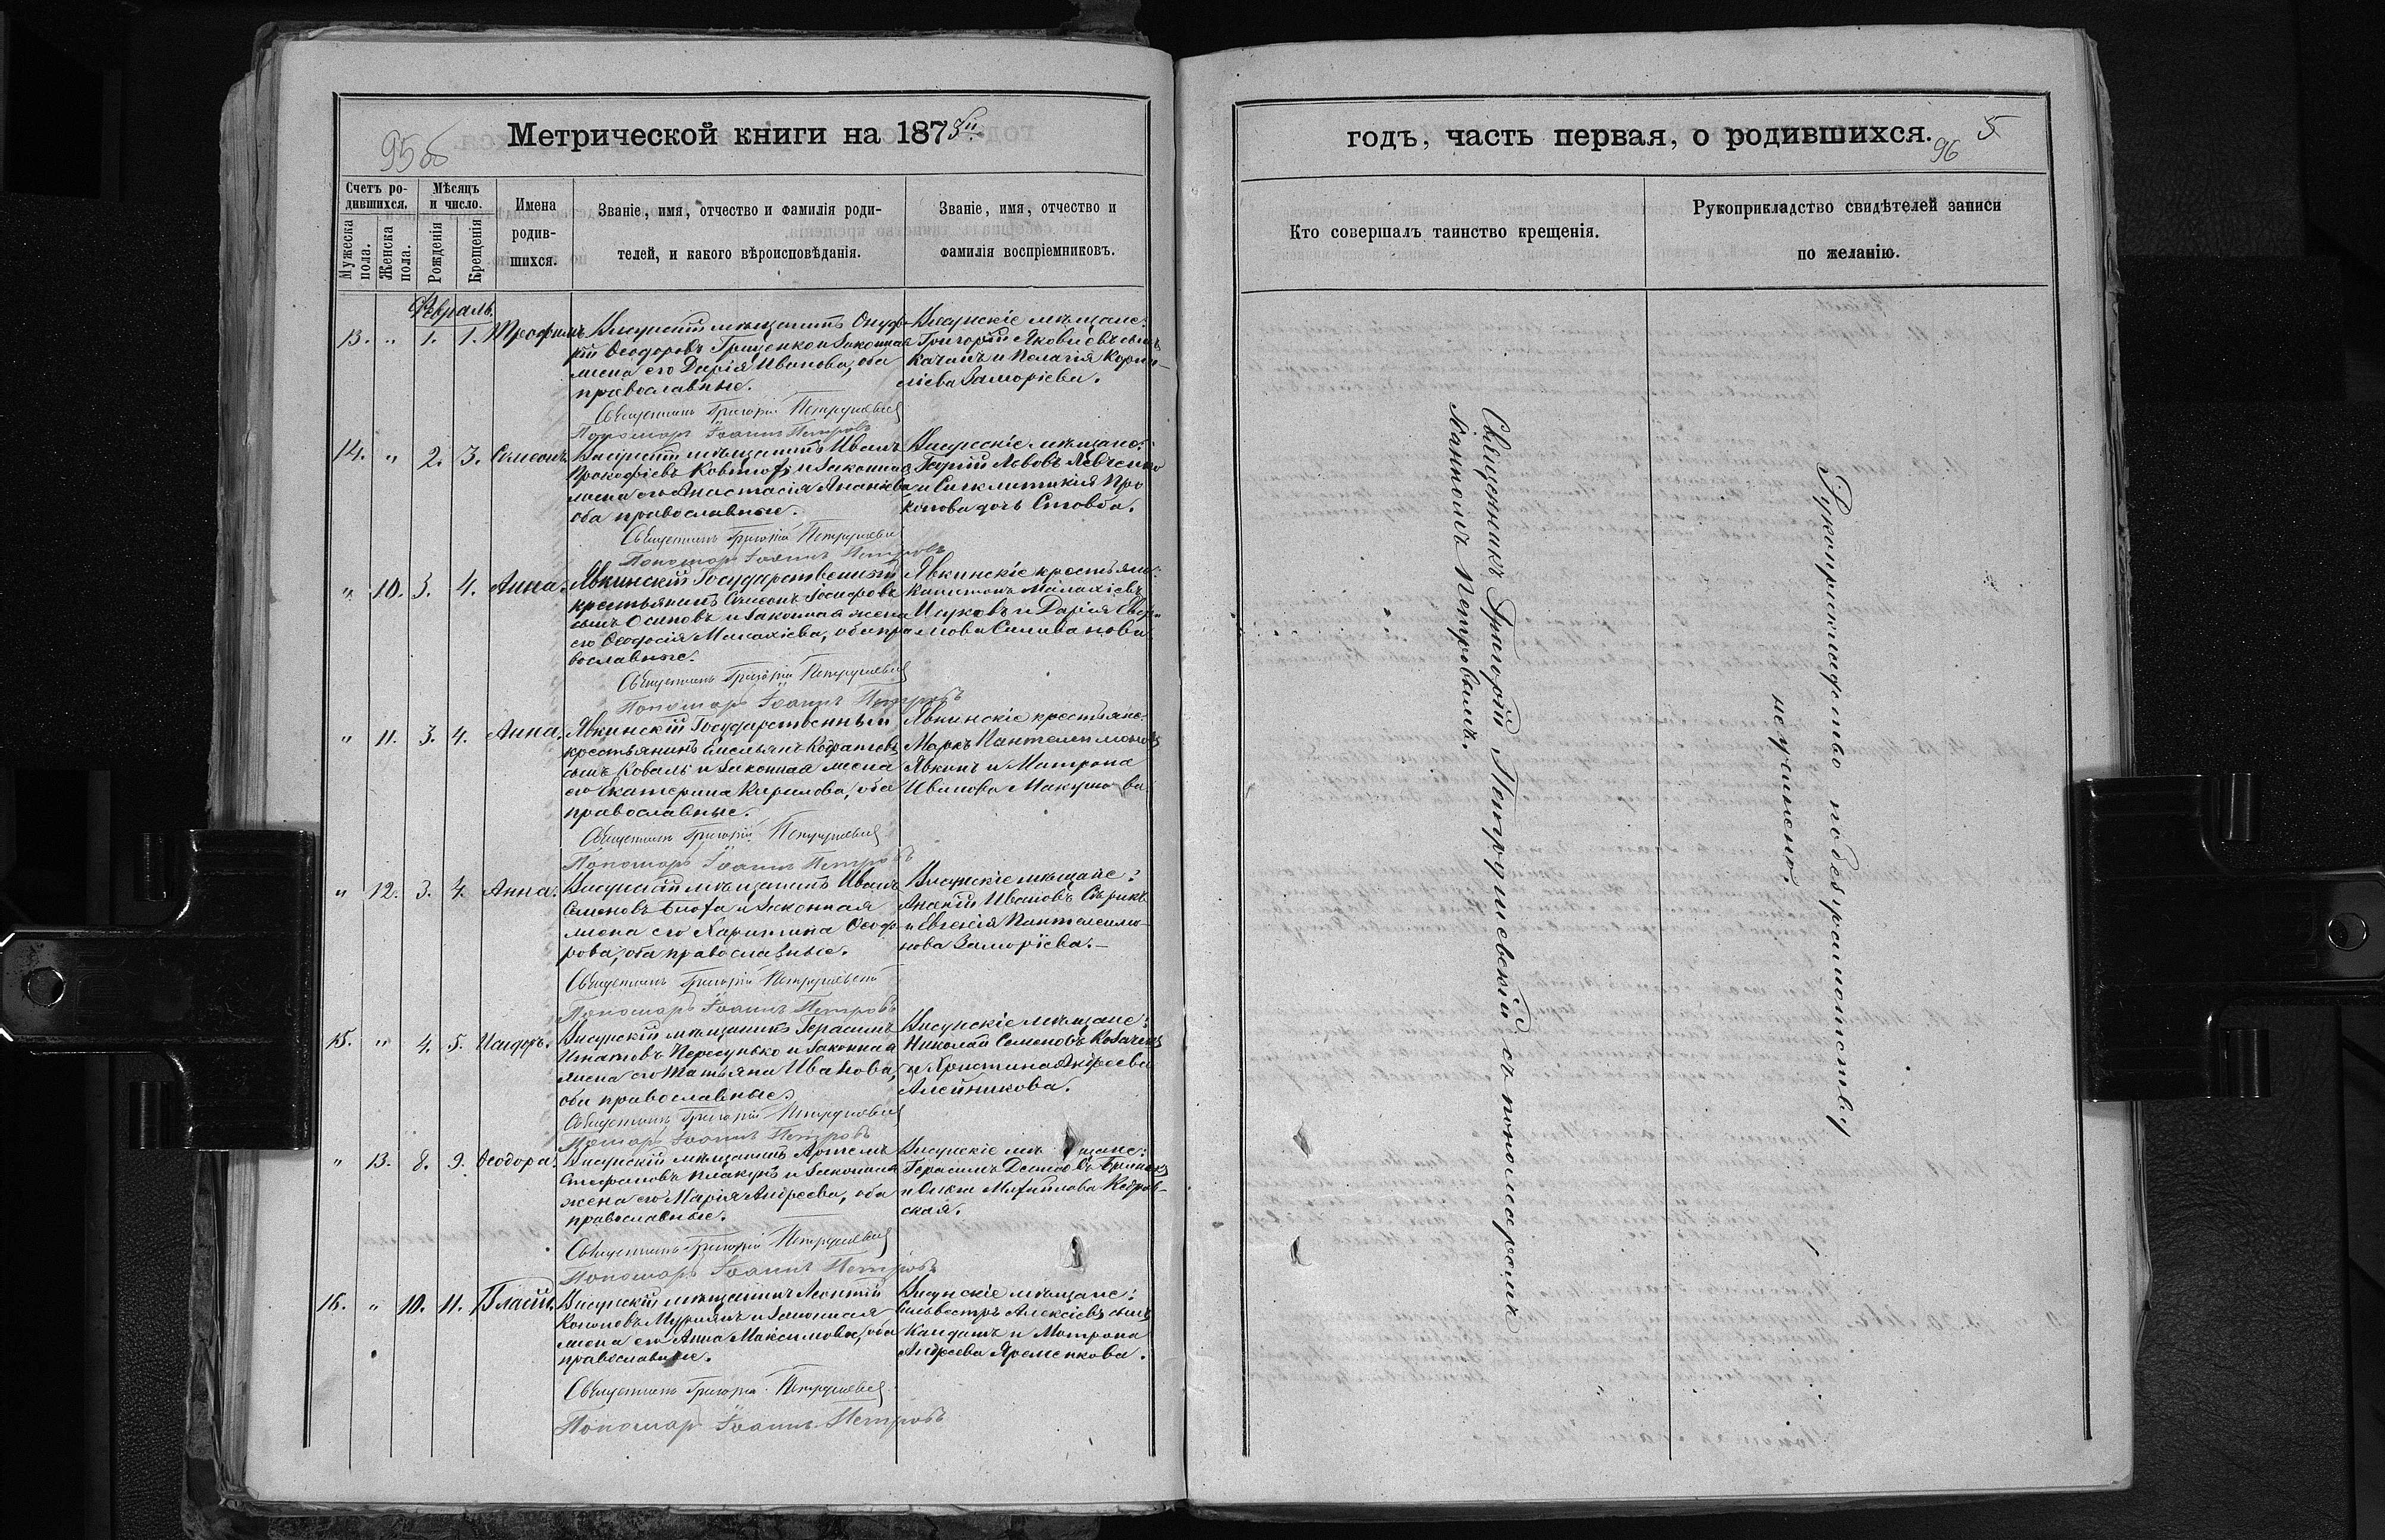 Метрической книги на 1875й
95об
Счетъ ро-
дившихся.
Мѣсяцъ
и число.
Мужеска
пола.
Женска
пола.
Рожденія
Крещенія
Имена
родив-
шихся.
Званіе, имя, отчество и фамилія роди-
телей, и какого вѣроисповѣданія.
Званіе, имя, отчество и
фамилія воспріемниковъ.
Февраль.
13. " 1. 1.
Висунскій мѣщанинъ Онуф-
рій Ѳеодоровъ Грищенко и законная
жена его Дарія Иванова, оба
православные.
Висунскіе мѣщане:
Григорій Яковлевъ сынъ
Качанъ и Пелагія Корни-
лієва Заморіева.
Священникъ Григорій Петрушевскій
Пономарь Іоаннъ Петровъ
14. " 2. 3. Симеонъ.
Висунскій мѣщанинъ Иванъ
Прокофіевъ и законная
жена его Анастасія Ананіева
оба православные.
Висунскіе мѣщане:
Георгій Львовъ Левченко
и Синклитикія Про
копова дочь Стовба.
Священникъ Григорій Петрушевскій
Пономарь Іоаннъ Петровъ
" 10. 3. 4. Анна.
Явкинскій Государственный
крестьянинъ Симеонъ Іосифовъ
сынъ Осиповъ и законная жена
его Ѳеодосія Малахіева, оба пра
вославные.
Явкинскіе крестьяне:
Капитонъ Малахіевъ
и Дарія
Силиванова
Священникъ Григорій Петрушевскій
Пономарь Іоаннъ Петровъ
" 11. 3. 4. Анна.
Явкинскій Государственный
крестьянинъ Емельянъ Кодратовъ
сынъ Коваль и законная жена
его Екатерина Кирилова, оба
православные.
Явкинскіе крестьяне:
Маркъ Пантелеимоновъ
Явкинъ и Матрона
Иванова Макушова
Священникъ Григорій Петрушевскій
Пономарь Іоаннъ Петровъ
" 12. 3. 4. Анна.
Висунскій мѣщанинъ Иванъ
Семеновъ и законная
жена его Харитина Ѳеодо
рова, оба православные.
Висунскіе мѣщане:
Ананій Ивановъ Сѣрикъ
и Евгенія Пантелеимо-
нова Заморіева.
Священникъ Григорій Петрушевскій
Пономарь Іоаннъ Петровъ
15. " 4. 5. Исидоръ.
Висунскій мѣщанинъ Герасимъ
Игнатовъ Пересунько и законная
жена его Татьяна Иванова,
оба православные.
Висунскіе мѣщане:
Николай Семеновъ
и Христина Андреева
Алейникова.
Священникъ Григорій Петрушевскій
Пономарь Іоаннъ Петровъ
" 13. 8. 9. Ѳеодора.
Висунскій мѣщанинъ Артемъ
Стефановъ Плакунъ и законная
жена его Марія Андреева, оба
православные.
Висунскіе мѣщане:
Герасимъ
и Ольга Михайлова Кедров-
ская.
Священникъ Григорій Петрушевскій
Пономарь Іоаннъ Петровъ
16. " 10. 11. Власій.
Висунскій мѣщанинъ Леонтій
Кононовъ и законная
жена его Анна Максимова, оба
православные.
Висунскіе мѣщане:
Сильвестръ Алексіевъ сынъ
Кандашъ и Матрона
Андреева Яременкова.
Священникъ Григорій Петрушевскій
Пономарь Іоаннъ Петровъ
годъ, часть первая, о родившихся.
96
5
Кто совершалъ таинство крещенія.
Рукоприкладство свидѣтелей записи
по желанію.
Священникъ Григорій Петрушевскій съ пономаремъ
Іоанномъ Петровымъ.
Рукоприкладство по безграмотству
не учинено.